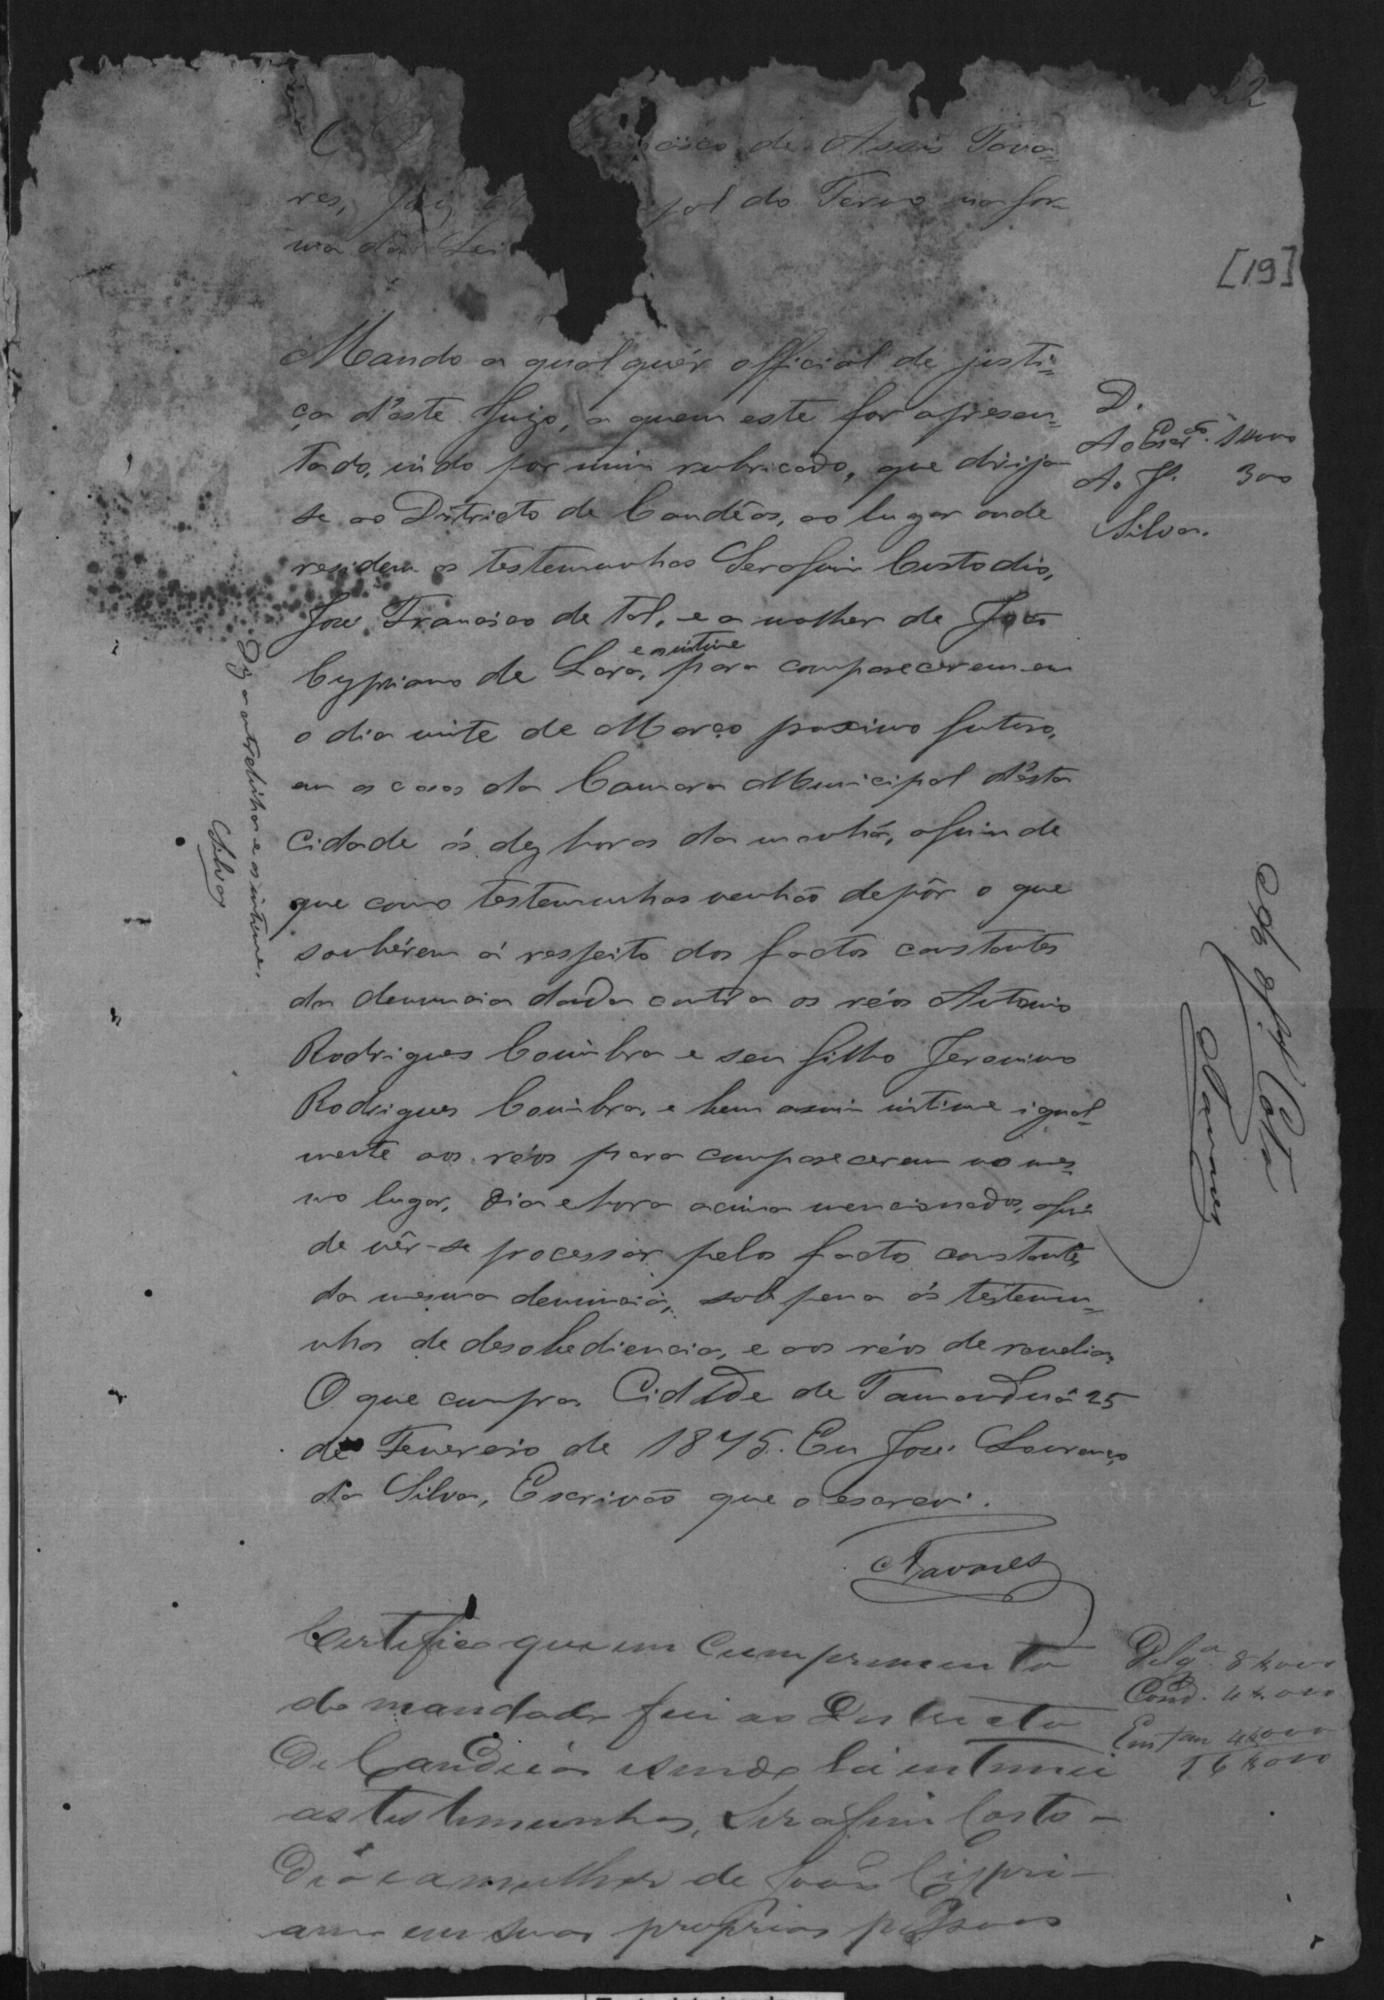 22
[19]
O ancisco de Assis Tava-
res, Juiz pal do Termo na for-
ma da Lei
Mando a qualquér official de justi-
ça d'este Juizo, a quem este for apresen-
tado, indo por mim rubricado, que dirija
se ao Districto de Candêas, ao lugar onde
residem as testemunhas Serafim Custodio,
José Francisco de tal, e a mulher de João
Cypriano de Lara, e as intime para comparecerem em
o dia vinte de Março proximo futuro,
em as casas da Camara Municipal d'esta
Cidade ás dez horas da manhã, afim de
que como testemunhas venhão depôr o que
soubérem á respeito dos factos constantes
da denuncia dada contra os réos Antonio
Rodrigues Coimbra e seu filho Jeronimo
Rodrigues Coimbra, e bem assim intime igual-
mente aos réos para comparecerem no mes-
mo lugar, dia e hora acima mencionados, afim
de vêr-se processar pelos factos constantes
da mesma denuncia, sob pena ás testemu-
nhas de desobediencia, e aos réos de revelia,
O que cumpra. Cidade de Tamanduá 25
de Fevereiro de 1875. Eu José Lourenço
da Silva, Escrivão que o escrevi.
Tavares
D.
Ao Escr.ão 1000
Ao J. 300
Silva.
Diz a entrelinha e as intime.
Silva
Tavares
Certifico que em cumprimento
do mandado fui ao Districto
de Candeias e sendo lá intimei
as testemunhas, Serafim Costo-
dio e a mulher de João Cipri-
ano em suas proprias pessoas
Delg.a 8$000
Cond. 4$000
Em tam 4$000
16$000